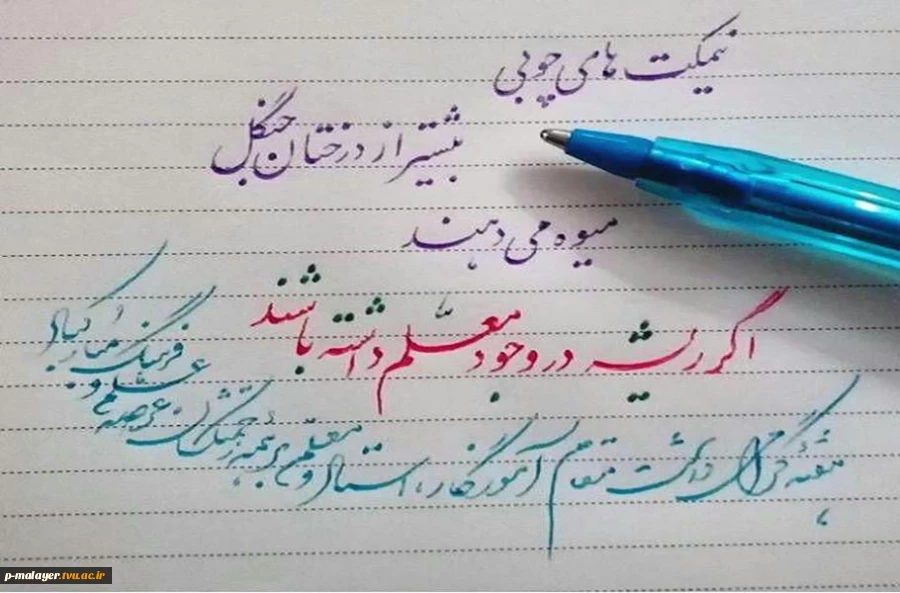 نیمکت های چوبی
بیشتر از درختان جنگل
میوه می دهند
اگر ریشه در وجود معلّم داشته باشند
هفتهٔ گرامی داشت مقام آموزگار، استاد و معلّم بر همه زحمتکشان عرصه
علم و
فرهنگ مبارکباد
p-malayer.tvu.ac.ir